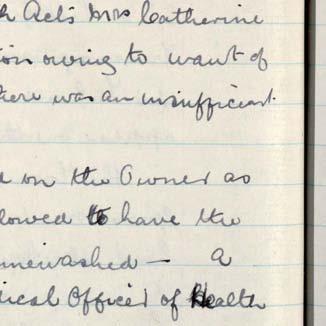 h Act's Mrs Catherine
ion owing to want of
there was an insufficient
d on the Owner as
lowed to have the
imewashed — A
dical Officer of Health